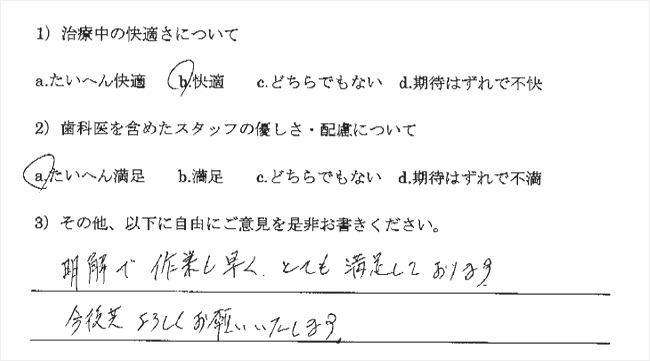 1）治療中の快適さについて
a.たいへん快適 b.快適 c.どちらでもない d.期待はずれで不快
2）歯科医を含めたスタッフの優しさ・配慮について
a.たいへん満足 b.満足 c.どちらでもない d.期待はずれで不満
3）その他、以下に自由にご意見を是非お書きください。
明解で 作業も早く、とても 満足しております。
今後共 よろしくお願いいたします。